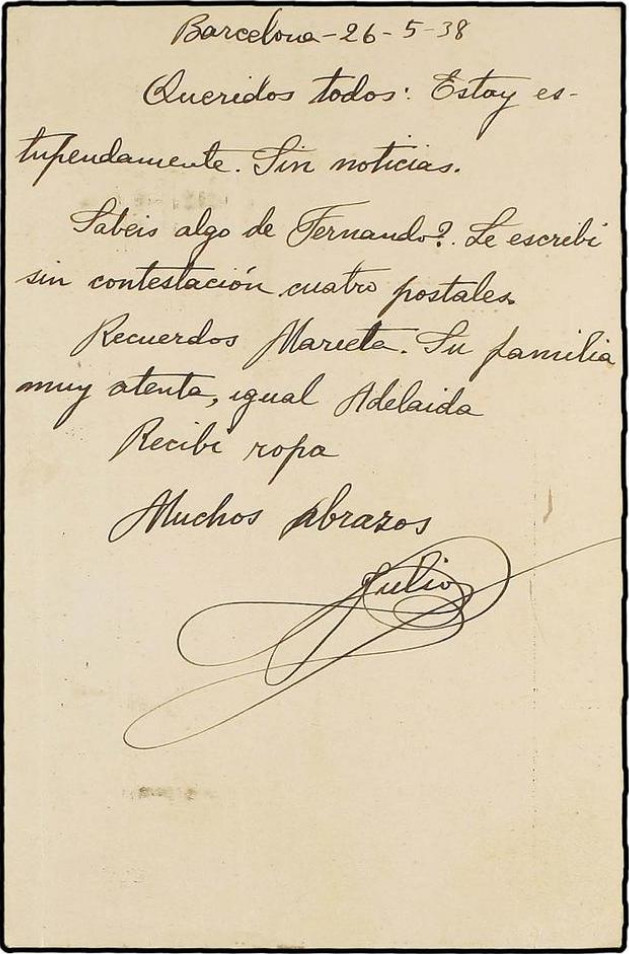 Barcelona - 26 - 5 - 38
Queridos todos: Estoy es-
tupendamente. Sin noticias.
Sabeis algo de Fernando?. Le escribi
sin contestación cuatro postales.
Recuerdos Marieta. Su familia
muy atenta, igual Adelaida
Recibi ropa
Muchos abrazos
Julio